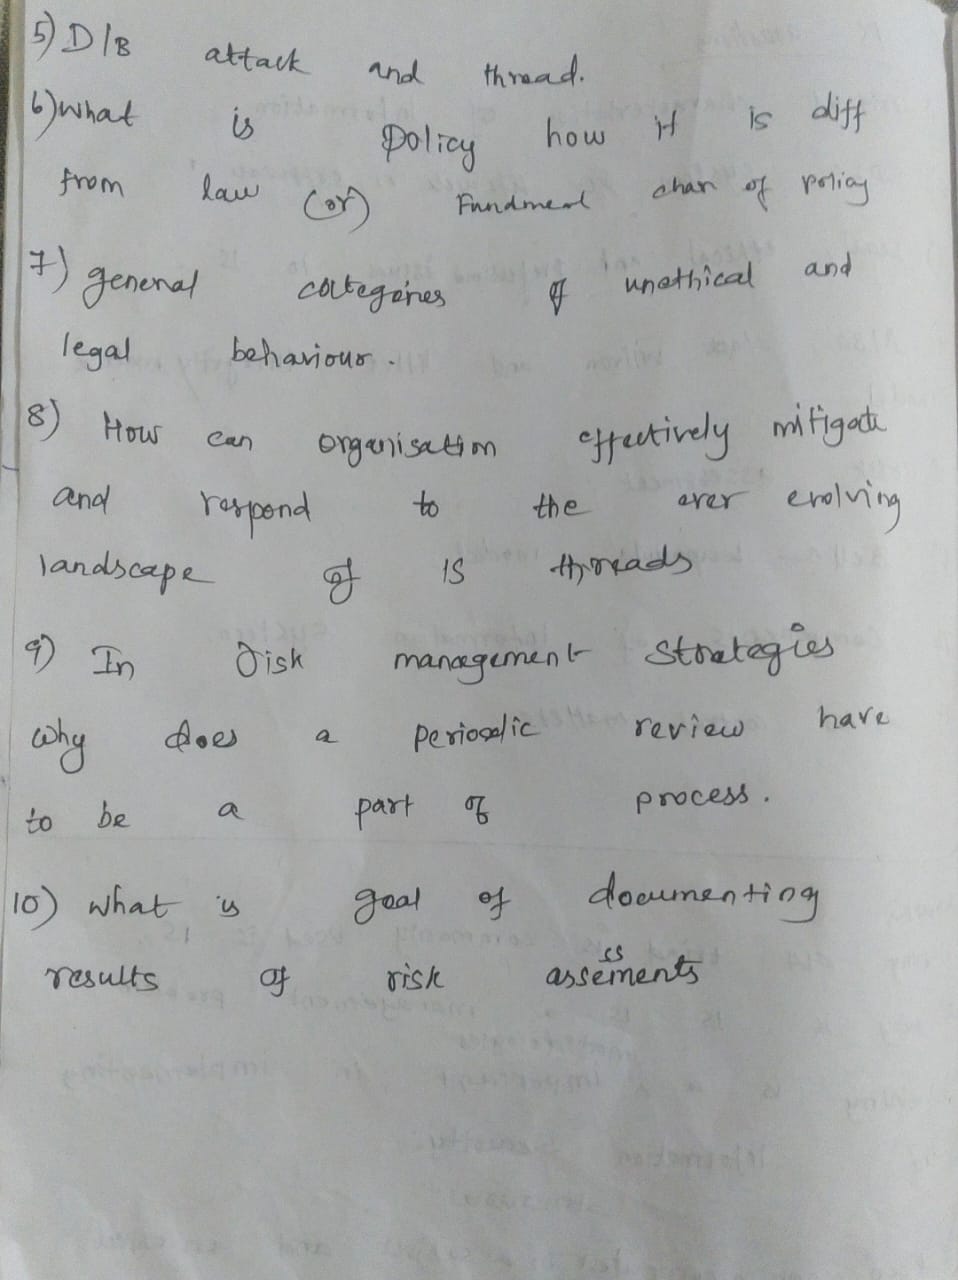 5) D/B attack and thread.
6) What is policy how it is diff
from law (or) Fundmenal char of policy
7) general categories of unethical and
legal behaviour.
8) How can organisation effectively mitigate
and respond to the ever evolving
landscape of IS threads
9) In risk management strategies
why does a periodic review have
to be a part of process.
10) what is goal of documenting
results of risk assessments